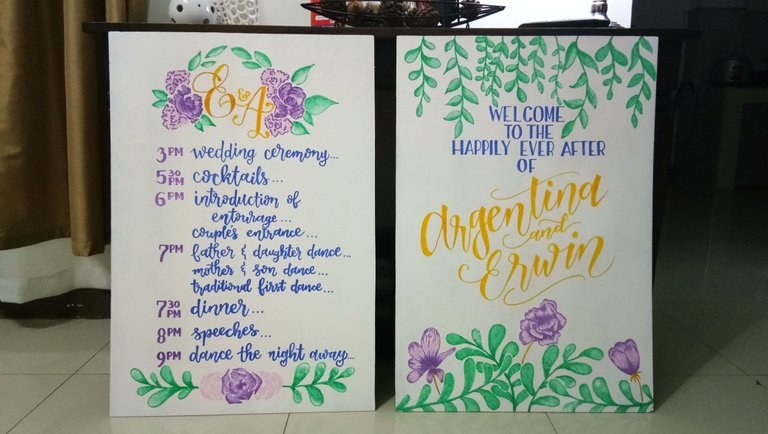 E & A
3PM wedding ceremony...
5 30 PM cocktails...
6PM introduction of
entourage...
couple's entrance...
7PM father & daughter dance...
mother & son dance...
traditional first dance...
7 30 PM dinner...
8PM speeches...
9PM dance the night away...
WELCOME
TO THE
HAPPILY EVER AFTER
OF
Argentina
and
Erwin